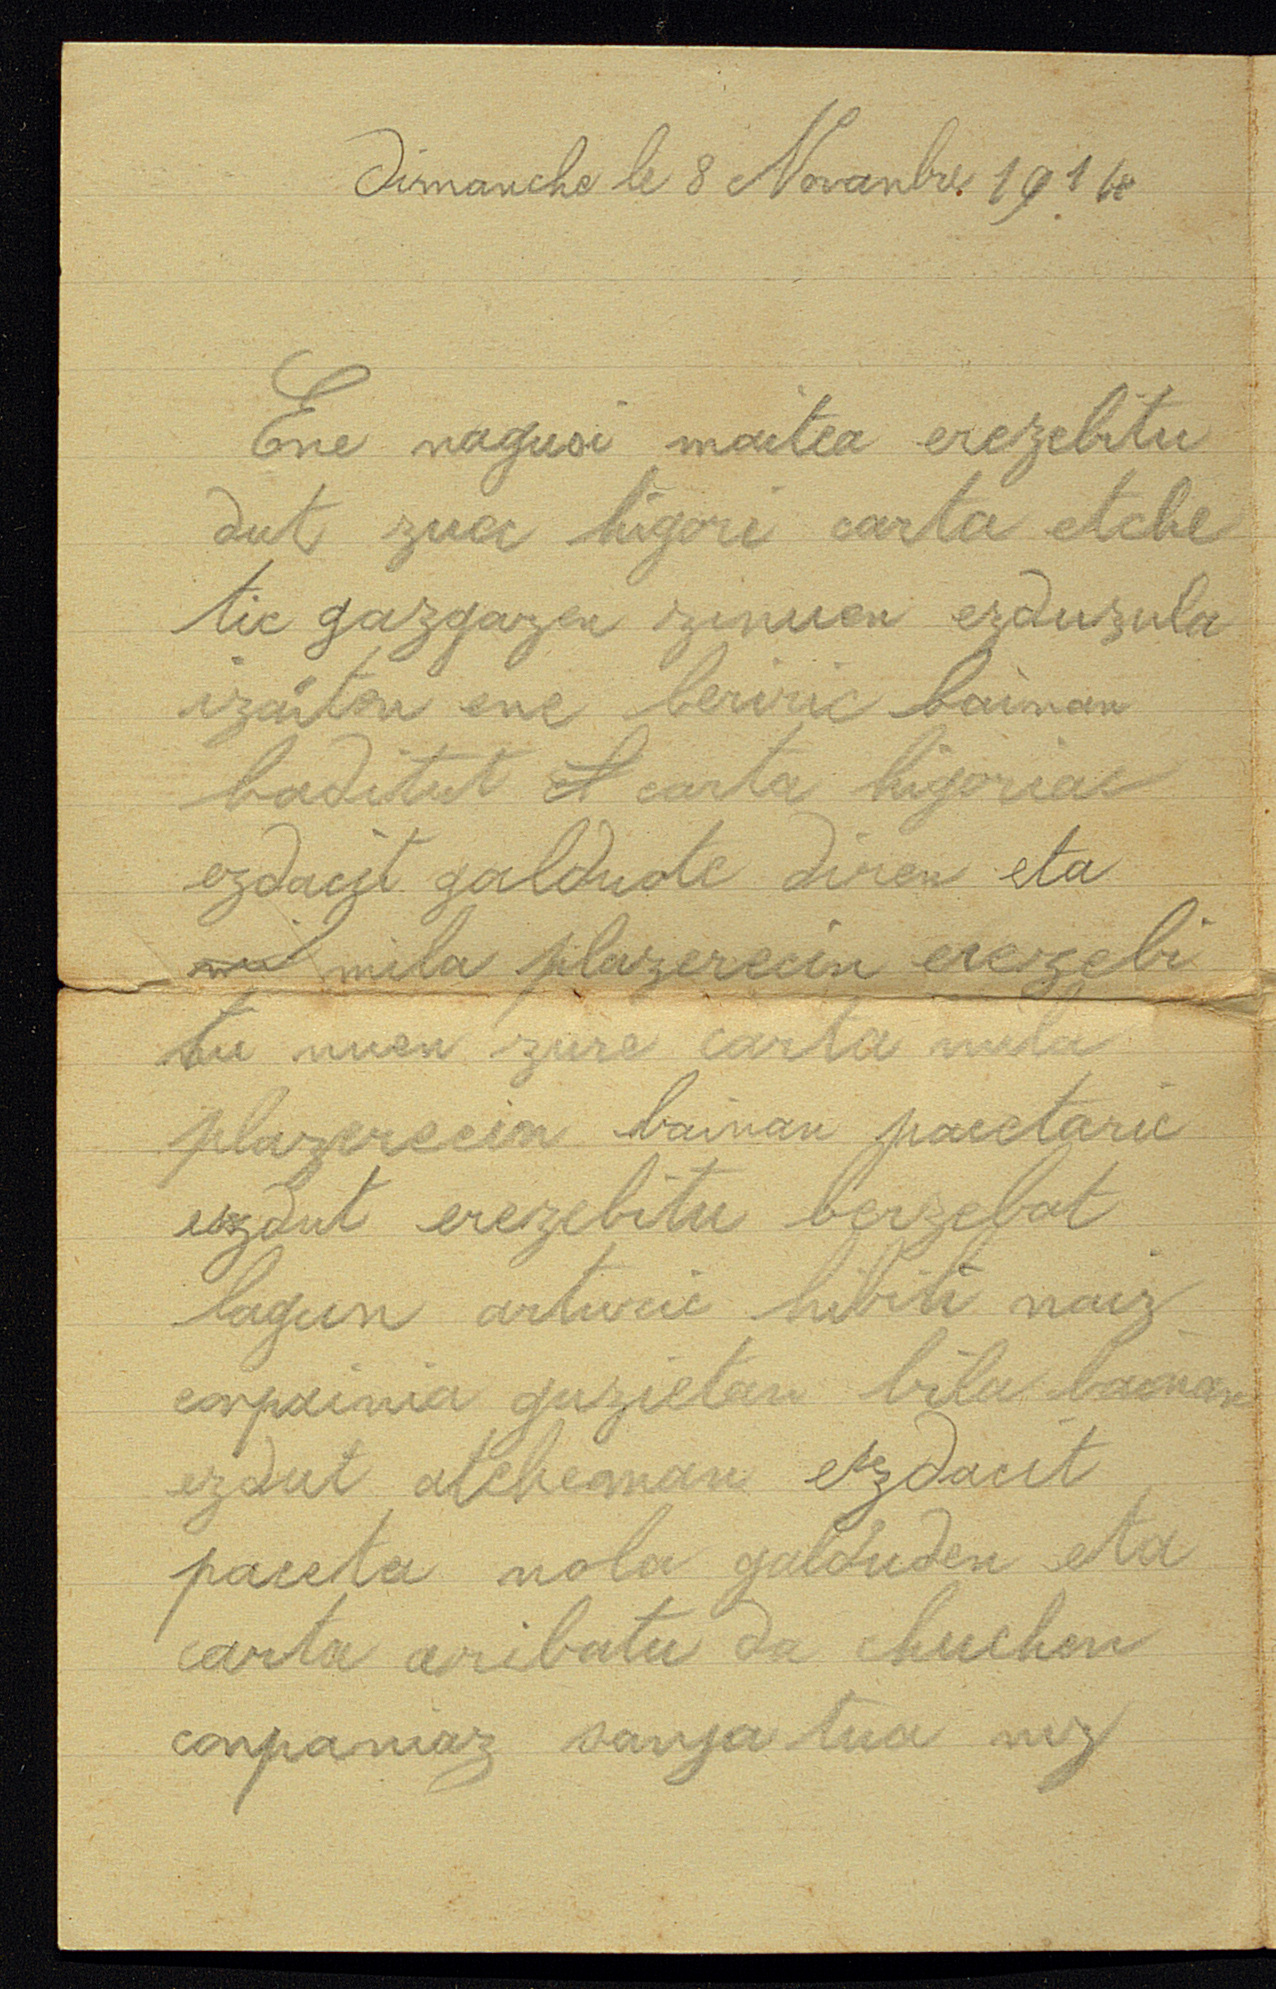 Dimanche le 8 Novanbre 1914
Ene nagusi maitea erezebitu
dut zuec higori carta etche
tic gazgazen zinuen ezduzula
izaiten ene beriric bainan
baditut carta higoriac
ezdacit galduote diren eta
mila plazerecin erezebi
tu nuen zure carta mila
plazerecin bainan pacetaric
ezdut erezebitu berzebat
lagun arturic hibili naiz
conpainia guzietan bila bainan
ezdut atcheman ezdacit
paceta nola galduden eta
carta aribatu da chuchen
conpaniaz sanjatua niz